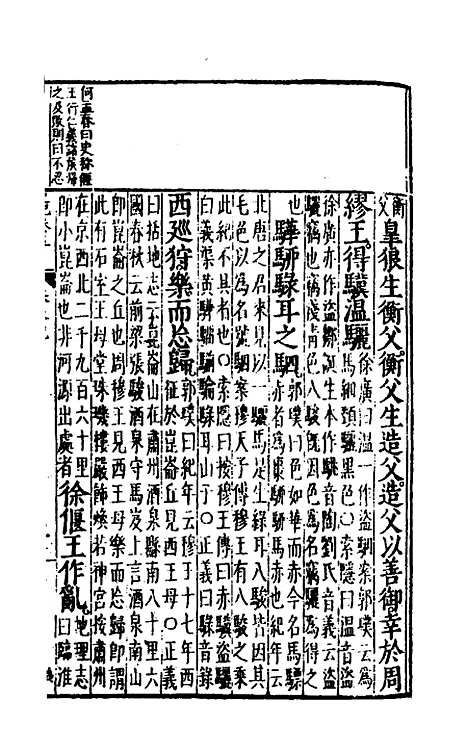 何孟春曰史稱偃
王行仁義諸侯歸
之及敗則曰不忍
衡父
臯狼生衡父衡父生造父造父以善御幸於周
繆王得驥溫驪
徐廣曰溫一作盜駰案郭璞云為
馬細頸驪黑色○索隱曰溫音盜
徐廣亦作盜鄒誕生本作駣音陶劉氏音義云盜
驪騧也騧淺青色八駿既因色為名騧驪為得之
也
驊駵騄耳之駟
郭璞曰色如華而赤今名馬驃
赤者為棗駵駵馬赤也紀年云
北唐之君來見以一驪馬是生綠耳八駿皆因其
毛色以為名號駰案穆天子傳穆王有八駿之乘
此紀不具者也○索隱曰按穆王傳曰赤驥盜驪
白義渠黃驊騮騟騄耳山子○正義曰騄音錄
西巡狩樂而忘歸
郭璞曰紀年云穆王十七年西
征於崑崙丘見西王母○正義
曰括地志云崑崙山在肅州酒泉縣南八十里十六
國春秋云前梁張駿酒泉守馬岌上言酒泉南山
即崑崙之丘也周穆王見西王母樂而忘歸即謂
此有石室王母堂珠璣鏤嚴飾煥若神宮按肅州
在京西北二千九百六十里
即小崑崙也非河源出處者
徐偃王作亂
地理志
曰臨淮